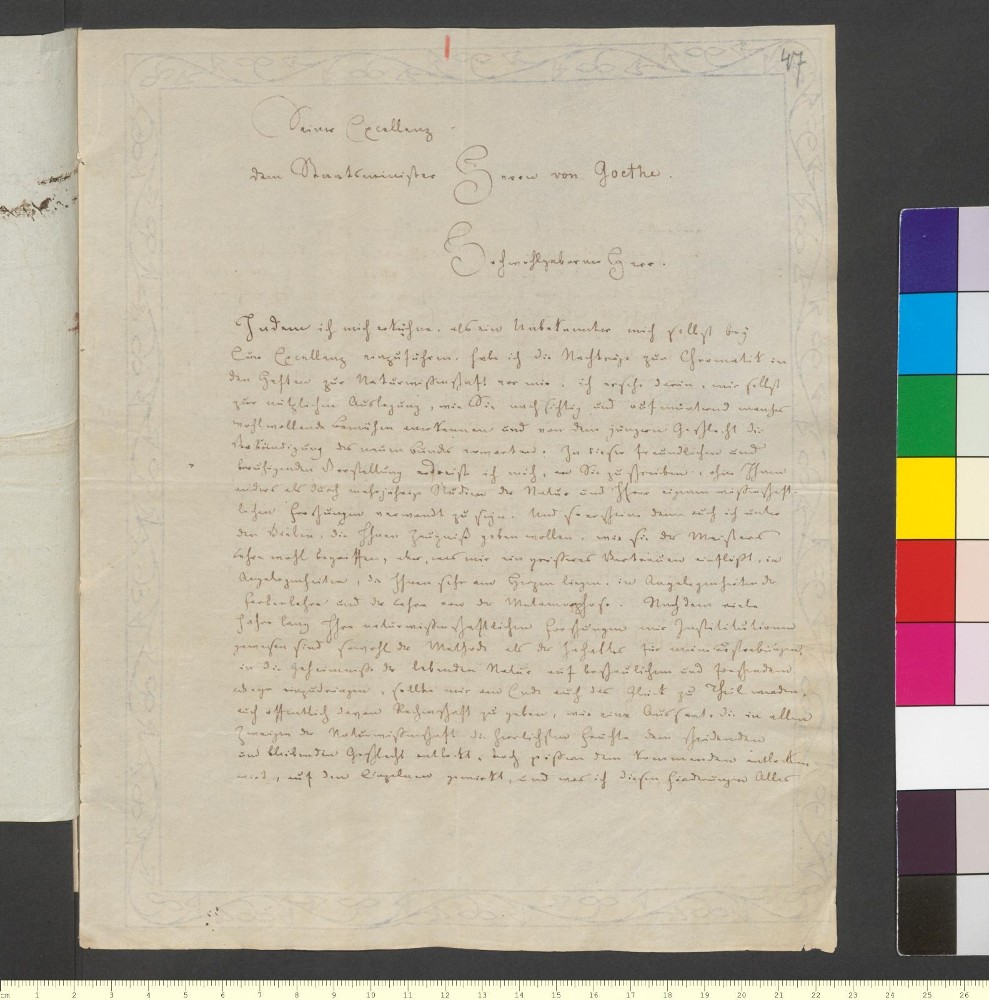 47
Seiner Excellenz
dem Staatsminister Herrn von Goethe.
Hochwohlgeborner Herr.
Indem ich mich erkühne, als ein Unbekannter mich selbst bey
Eure Excellenz einzuführen, habe ich die Nachträge zur Chromatik in
den Heften zur Naturwissenschaft vor mir, ich ersehe darin, mir selbst
zur nützlichen Auslegung, wie Sie nachsichtig und aufmunternd manches
wohlwollende Bemühen anerkennen und von dem jüngern Geschlecht die
Verkündigung des neuen Bundes erwarten. In dieser freundlichen und
beruhigenden Vorstellung erdreist ich mich, an Sie zu schreiben, ohne Ihnen
anders als durch mehrjährige Studien der Natur und Ihrer eignen wissenschaft-
lichen Forschungen verwandt zu seyn. Und so erscheine denn auch ich unter
den Vielen, die Ihnen Zeugniß geben wollen, wie sie des Meisters
Lehre wohl begriffen, aber, was mir ein größeres Vertrauen einflößt, in
Angelegenheiten, die Ihnen sehr am Herzen liegen, in Angelegenheiten der
Farbenlehre und der Lehre von der Metamorphose. Nachdem viele
Jahre lang Ihre naturwissenschaftlichen Forschungen mir Institutionen
gewesen sind sowohl der Methode als des Inhaltes für meine Bestrebungen,
in die Geheimnisse der lebenden Natur auf beschaulichem und forschendem
Wege einzudringen, sollte mir am Ende auch das Glück zu Theil werden,
auch öffentlich davon Rechenschaft zu geben, wie eine Aussaat, die in allen
Zweigen der Naturwissenschaft die herrlichsten Früchte dem scheidenden
und bleibenden Geschlecht entlockt, noch dem kommenden entlocken
wird, auf den Einzelnen gewirkt, und was ich diesen Forderungen Alles